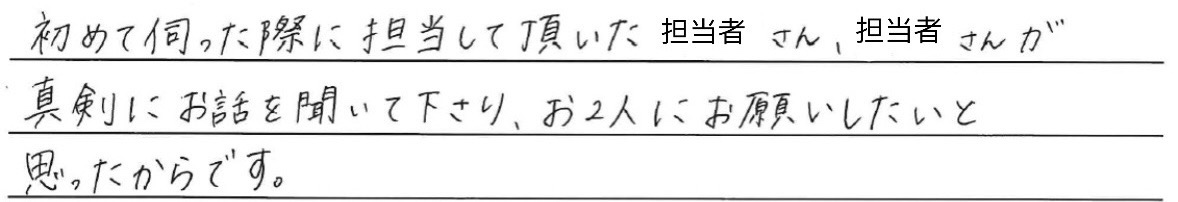 初めて伺った際に担当して頂いた 担当者 さん、担当者 さんが
真剣にお話を聞いて下さり、お2人にお願いしたいと
思ったからです。